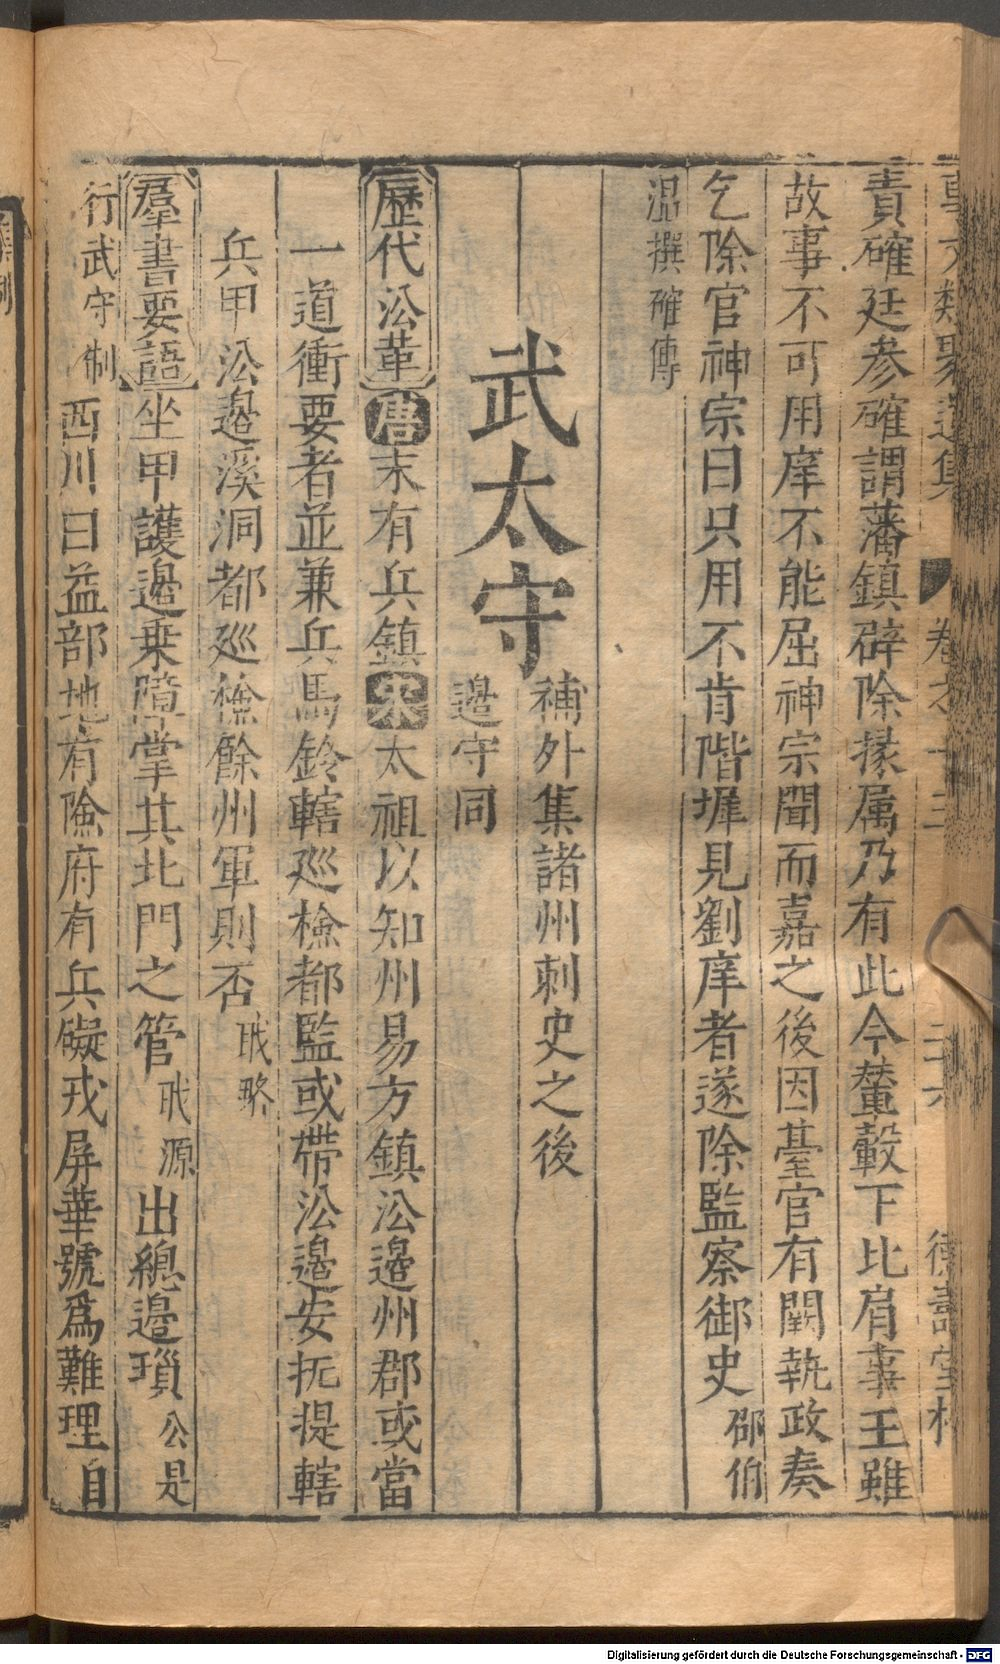 責確廷參確謂藩鎮辟除掾属乃有此今輦轂下比肩事王雖
故事不可用庠不能屈神宗聞而嘉之後因臺官有闕執政奏
乞除官神宗曰只用不肯階墀見劉庠者遂除監察御史 邵伯
温撰確傳
武太守 補外集諸州刺史之後
邉守同
歷代㳂革 唐末有兵鎮宋太祖以知州易方鎮㳂邉州郡或當
一道衝要者並兼兵馬鈴轄廵檢都監或帶㳂邉安抚提轄
兵甲㳂邉溪洞都廵檢餘州軍則否 戠略
羣書要語 坐甲護邉乗障掌其北門之管 戠源 出總邉瑣 公是
行武守制 西川曰益部地有險府有兵礙戎屏華號爲難理自
卷之十三
二六
德壽堂梓
Digitalisierung gefördert durch die Deutsche Forschungsgemeinschaft - DFG